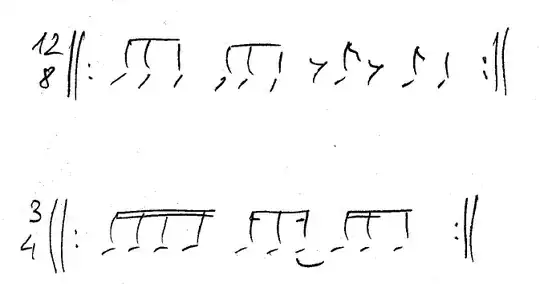 12
8
3
4